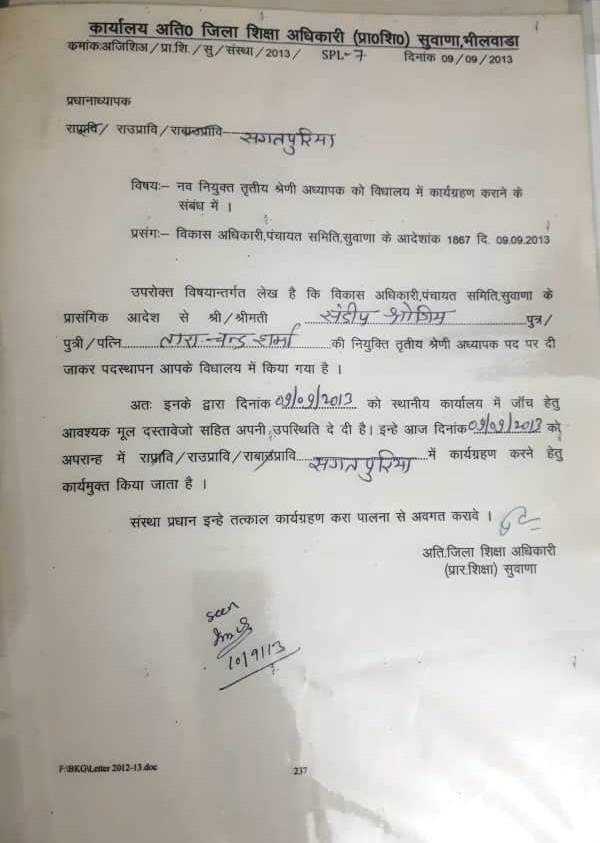 कार्यालय अति0 जिला शिक्षा अधिकारी (प्रा0शि0) सुवाणा,भीलवाडा
कमांकःअजिशिअ / प्रा.शि. / सु / संस्था / 2013 / SPL-7 दिनांक 09 / 09 / 2013
प्रधानाध्यापक
राप्रावि / राउप्रावि / राबाउप्रावि सगतपुरिया
विषयः– नव नियुक्त तृतीय श्रेणी अध्यापक को विधालय में कार्यग्रहण कराने के
संबंध में ।
प्रसंगः– विकास अधिकारी,पंचायत समिति,सुवाणा के आदेशांक 1867 दि. 09.09.2013
उपरोक्त विषयान्तर्गत लेख है कि विकास अधिकारी,पंचायत समिति,सुवाणा के
प्रासंगिक आदेश से श्री / श्रीमती संदीप श्रोत्रिय पुत्र /
पुत्री / पत्नि तारा चन्द्र शर्मा की नियुक्ति तृतीय श्रेणी अध्यापक पद पर दी
जाकर पदस्थापन आपके विधालय में किया गया है ।
अतः इनके द्वारा दिनांक 09/09/2013 को स्थानीय कार्यालय में जाँच हेतु
आवश्यक मूल दस्तावेजो सहित अपनी उपस्थिति दे दी है। इन्हे आज दिनांक 09/09/2013 को
अपरान्ह में राप्रावि / राउप्रावि / राबाउप्रावि सगतपुरिया में कार्यग्रहण करने हेतु
कार्यमुक्त किया जाता है ।
संस्था प्रधान इन्हे तत्काल कार्यग्रहण करा पालना से अवगत करावे ।
अति.जिला शिक्षा अधिकारी
(प्रार.शिक्षा) सुवाणा
seen
10/9/13
F:\BKG\Letter 2012-13.doc 237